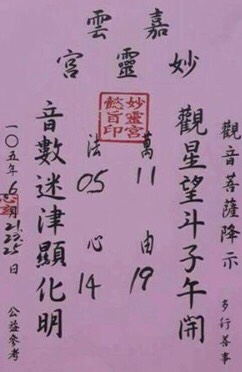 嘉雲
妙靈宮
觀音菩薩降示 多行善事
觀星望斗子午開
萬 11 由 19
妙靈宮
懿旨印
法 05 心 14
音數迷津顯化明
一〇五年 6 21.22.25日 公益參考